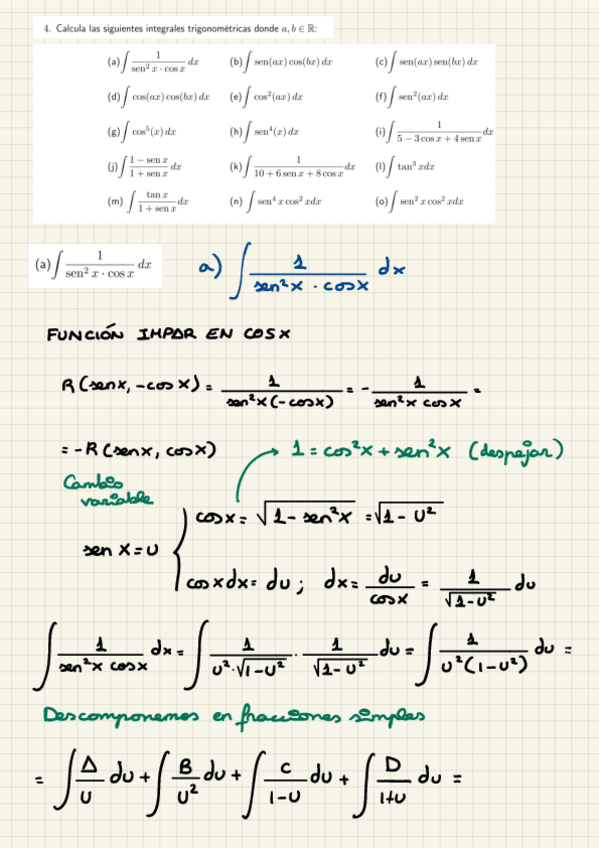 4. Calcula las siguientes integrales trigonométricas donde a, b ∈ ℝ:
(a) ∫ 1/(sen² x · cos x) dx (b) ∫ sen(ax) cos(bx) dx (c) ∫ sen(ax) sen(bx) dx
(d) ∫ cos(ax) cos(bx) dx (e) ∫ cos²(ax) dx (f) ∫ sen²(ax) dx
(g) ∫ cos⁵(x) dx (h) ∫ sen⁴(x) dx (i) ∫ 1/(5 − 3 cos x + 4 sen x) dx
(j) ∫ (1 − sen x)/(1 + sen x) dx (k) ∫ 1/(10 + 6 sen x + 8 cos x) dx (l) ∫ tan³ x dx
(m) ∫ tan x/(1 + sen x) dx (n) ∫ sen⁴ x cos² x dx (o) ∫ sen² x cos² x dx
(a) ∫ 1/(sen² x · cos x) dx a) ∫ 1/(sen²x · cosx) dx
FUNCIÓN IMPAR EN COSX
R(senx, -cosx) = 1/(sen²x(-cosx)) = - 1/(sen²x cosx) =
= -R(senx, cosx) 1 = cos²x + sen²x (despejar)
Cambio
variable
cosx = √(1 - sen²x) = √(1 - U²)
sen X = U
cosxdx = du ; dx = du/cosx = 1/√(1-U²) du
∫ 1/(sen²x cosx) dx = ∫ 1/(U²·√(1-U²)) · 1/√(1-U²) du = ∫ 1/(U²(1-U²)) du =
Descomponemos en fracciones simples
= ∫ A/U du + ∫ B/U² du + ∫ C/(1-U) du + ∫ D/(1+U) du =